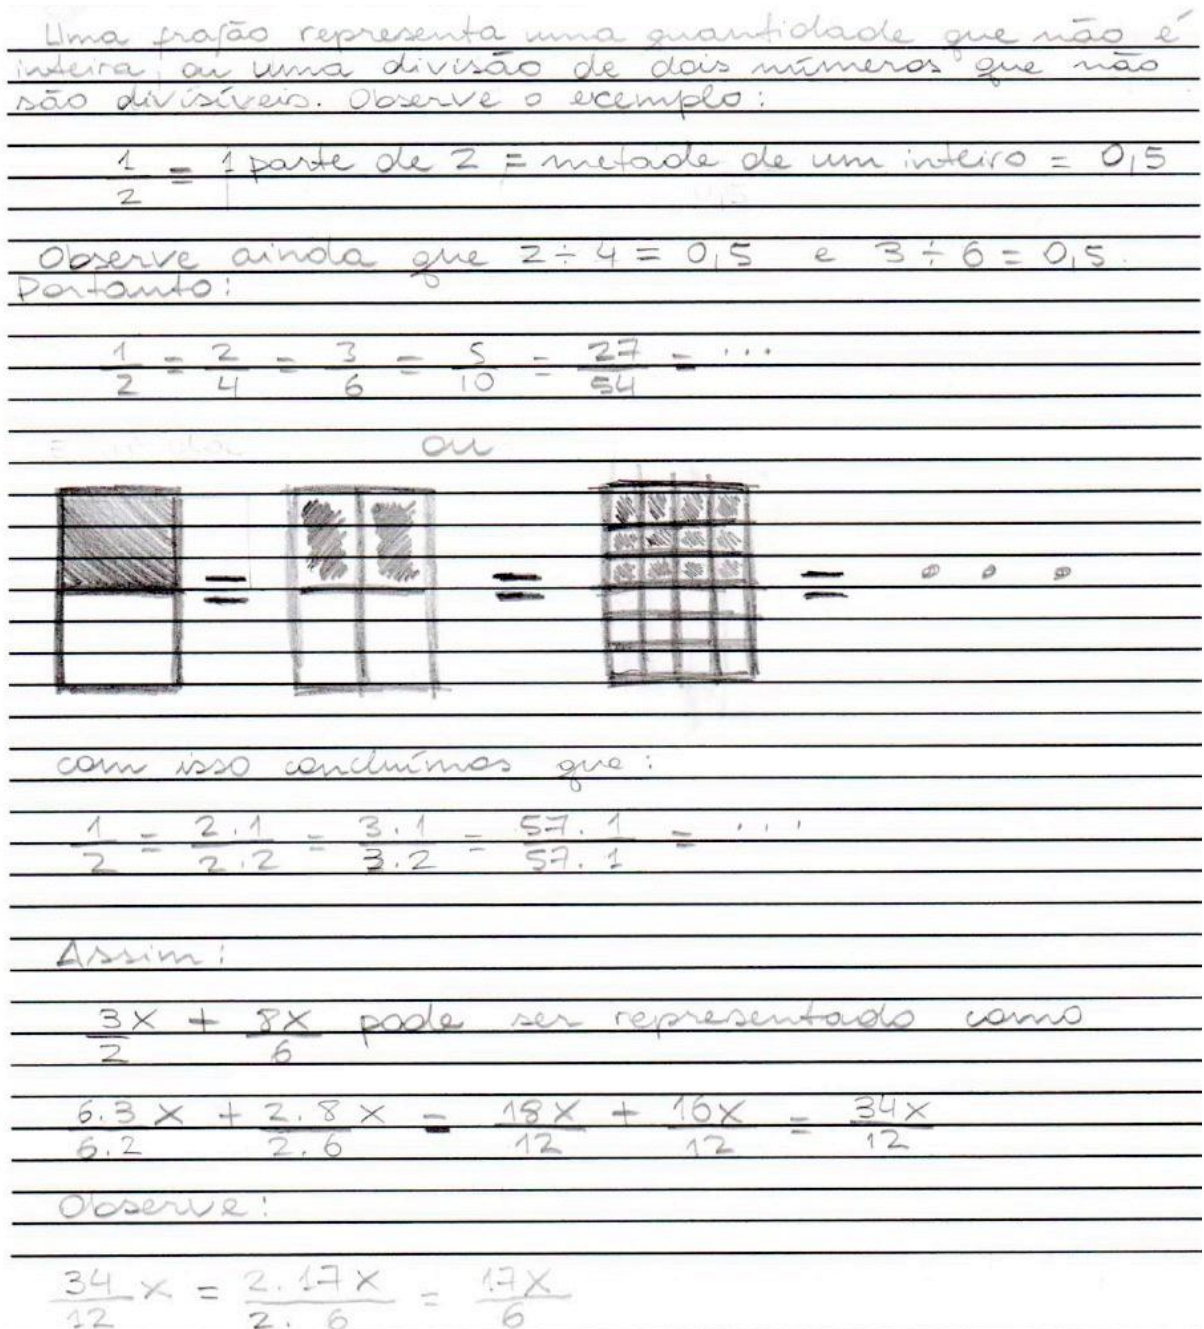 Uma fração representa uma quantidade que não é
inteira, ou uma divisão de dois números que não
são divisíveis. Observe o exemplo:
1/2 = 1 parte de 2 = metade de um inteiro = 0,5
Observe ainda que 2 ÷ 4 = 0,5 e 3 ÷ 6 = 0,5.
Portanto:
1/2 = 2/4 = 3/6 = 5/10 = 27/54 = ...
ou
= = = ...
com isso concluímos que:
1/2 = 2.1/2.2 = 3.1/3.2 = 57.1/57.1 = ...
Assim:
3x/2 + 8x/6 pode ser representado como
6.3x/6.2 + 2.8x/2.6 = 18x/12 + 16x/12 = 34x/12
Observe:
34/12 x = 2.17x/2.6 = 17x/6